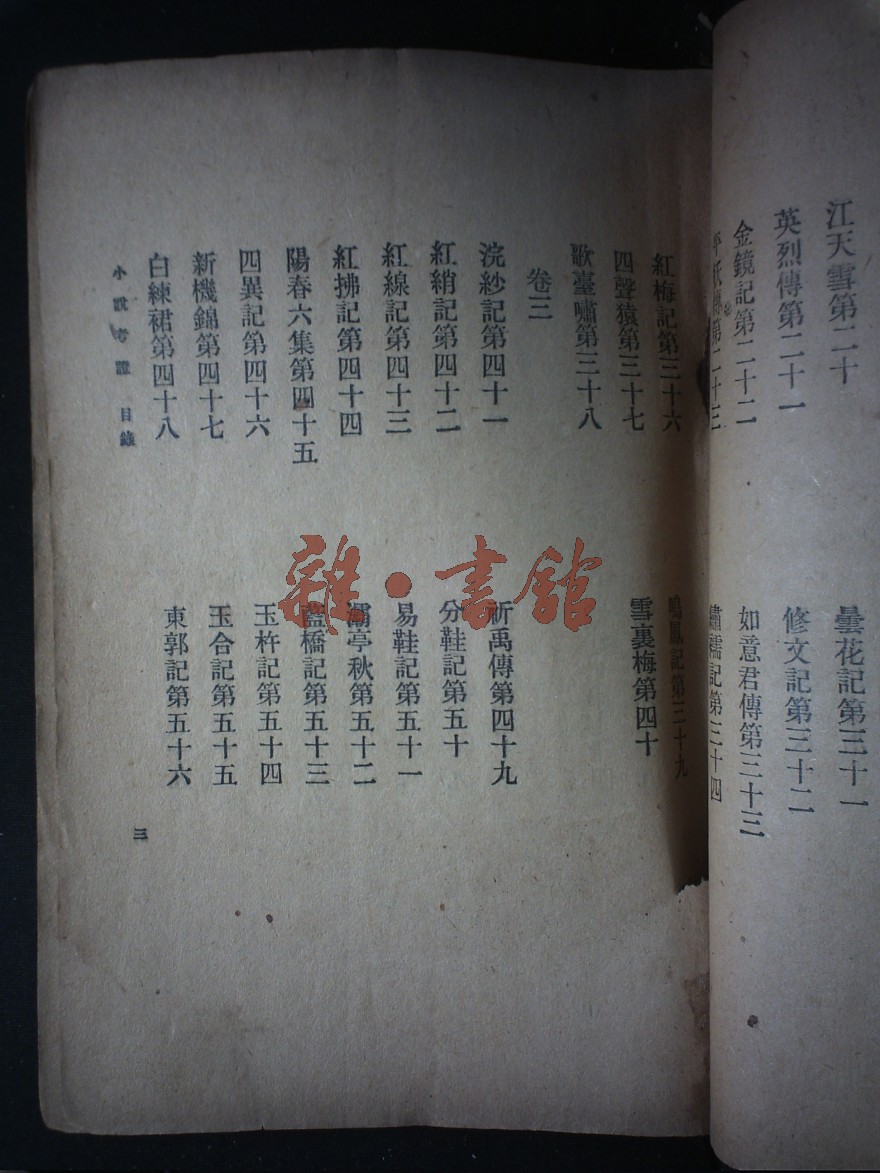 江天雪第二十
英烈傳第二十一
金鏡記第二十二
曇花記第三十一
修文記第三十二
如意君傳第三十三
繡襦記第三十四
紅梅記第三十六
四聲猿第三十七
歌臺嘯第三十八
鳴鳳記第三十九
雪裏梅第四十
卷三
浣紗記第四十一
紅綃記第四十二
紅線記第四十三
紅拂記第四十四
陽春六集第四十五
四異記第四十六
新機錦第四十七
白練裙第四十八
祈禹傳第四十九
分鞋記第五十
易鞋記第五十一
灞亭秋第五十二
藍橋記第五十三
玉杵記第五十四
玉合記第五十五
東郭記第五十六
小說考證 目錄
三
雜·書館